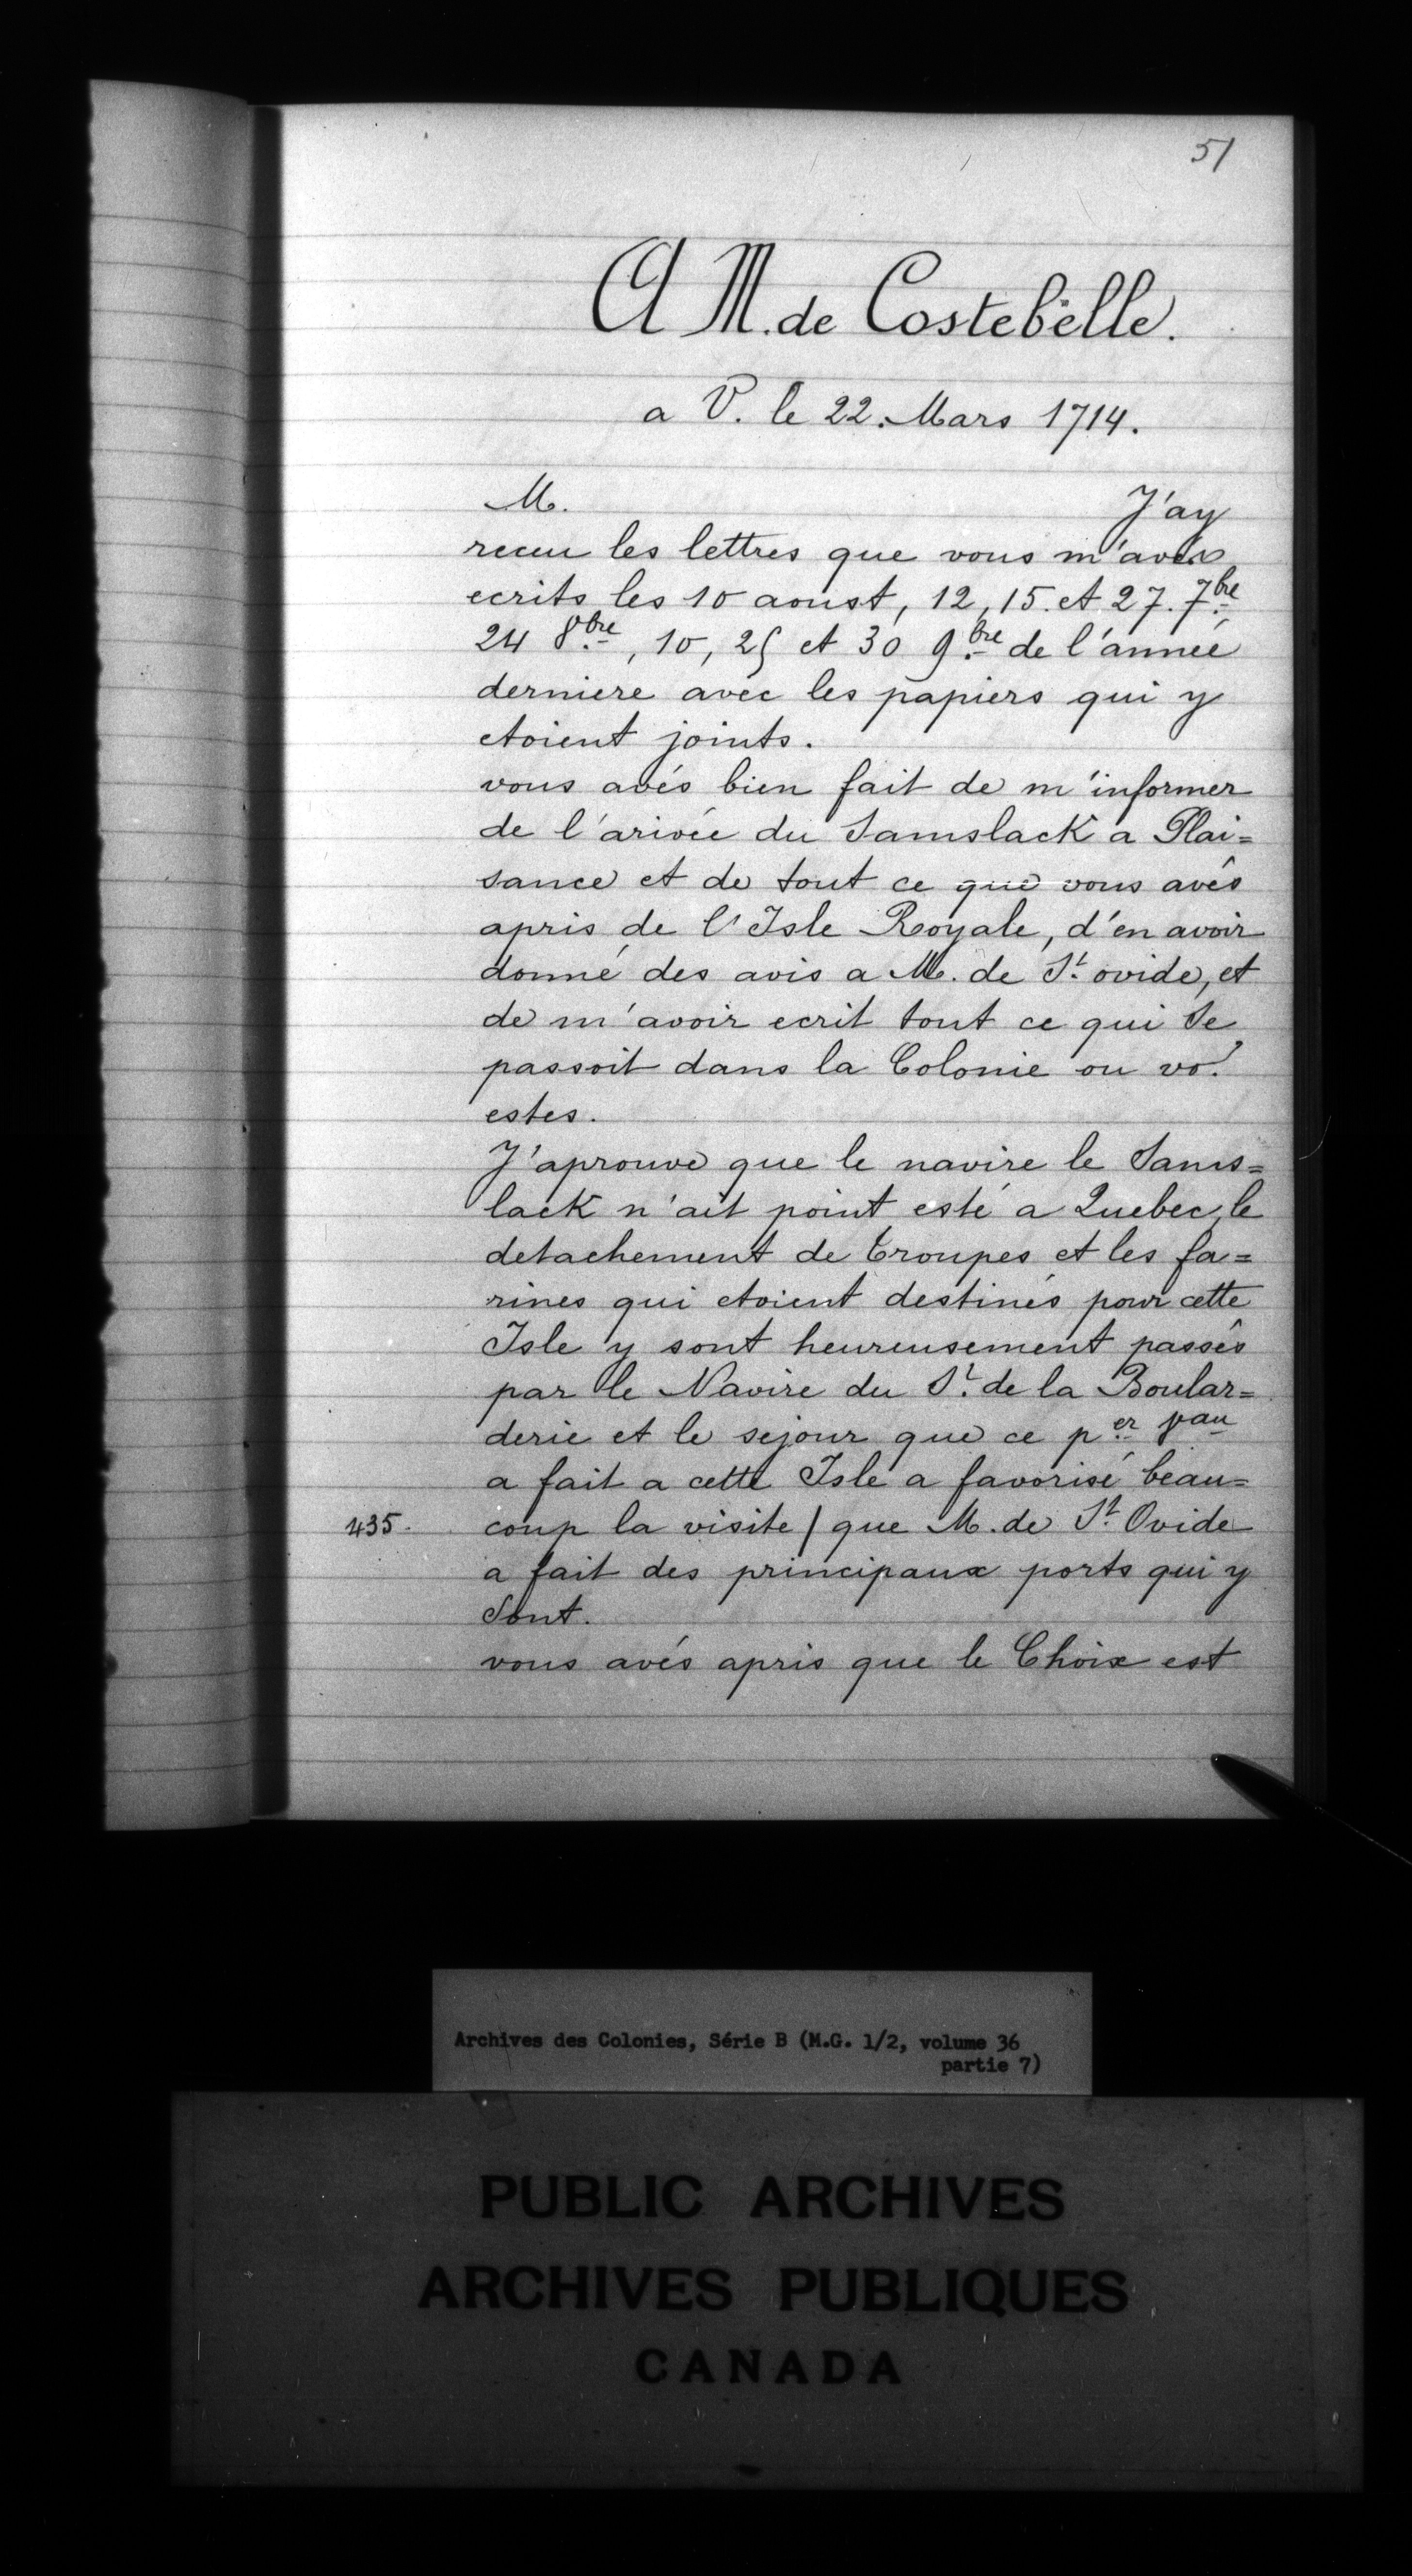 51
A M. de Costebelle.
a V. le 22. Mars 1714.
M. J'ay
receu les lettres que vous m'avés
ecrits les 10 aoust, 12, 15. et 27. 7bre,
24 8bre, 10, 25 et 30 9bre de l'année
derniere avec les papiers qui y
etoient joints.
vous avés bien fait de m'informer
de l'arivée du Samslack a Plai=
sance et de tout ce que vous avés
apris de l'Isle Royale, d'en avoir
donné des avis a M. de St. ovide, et
de m'avoir ecrit tout ce qui se
passoit dans la Colonie ou vos.
estes.
J'aprouve que le navire le Sams=
lack n'ait point esté a Quebec, le
detachement de troupes et les fa=
rines qui etoient destinés pour cette
Isle y sont heureusement passés
par le Navire du Sr. de la Boular=
derie et le sejour que ce per vau
a fait a cette Isle a favorisé beau=
435. coup la visite / que M. de St. Ovide
a fait des principaux ports qui y
sont.
vous avés apris que le Choix est
Archives des Colonies, Série B (M.G. 1/2, volume 36
partie 7)
PUBLIC ARCHIVES
ARCHIVES PUBLIQUES
CANADA